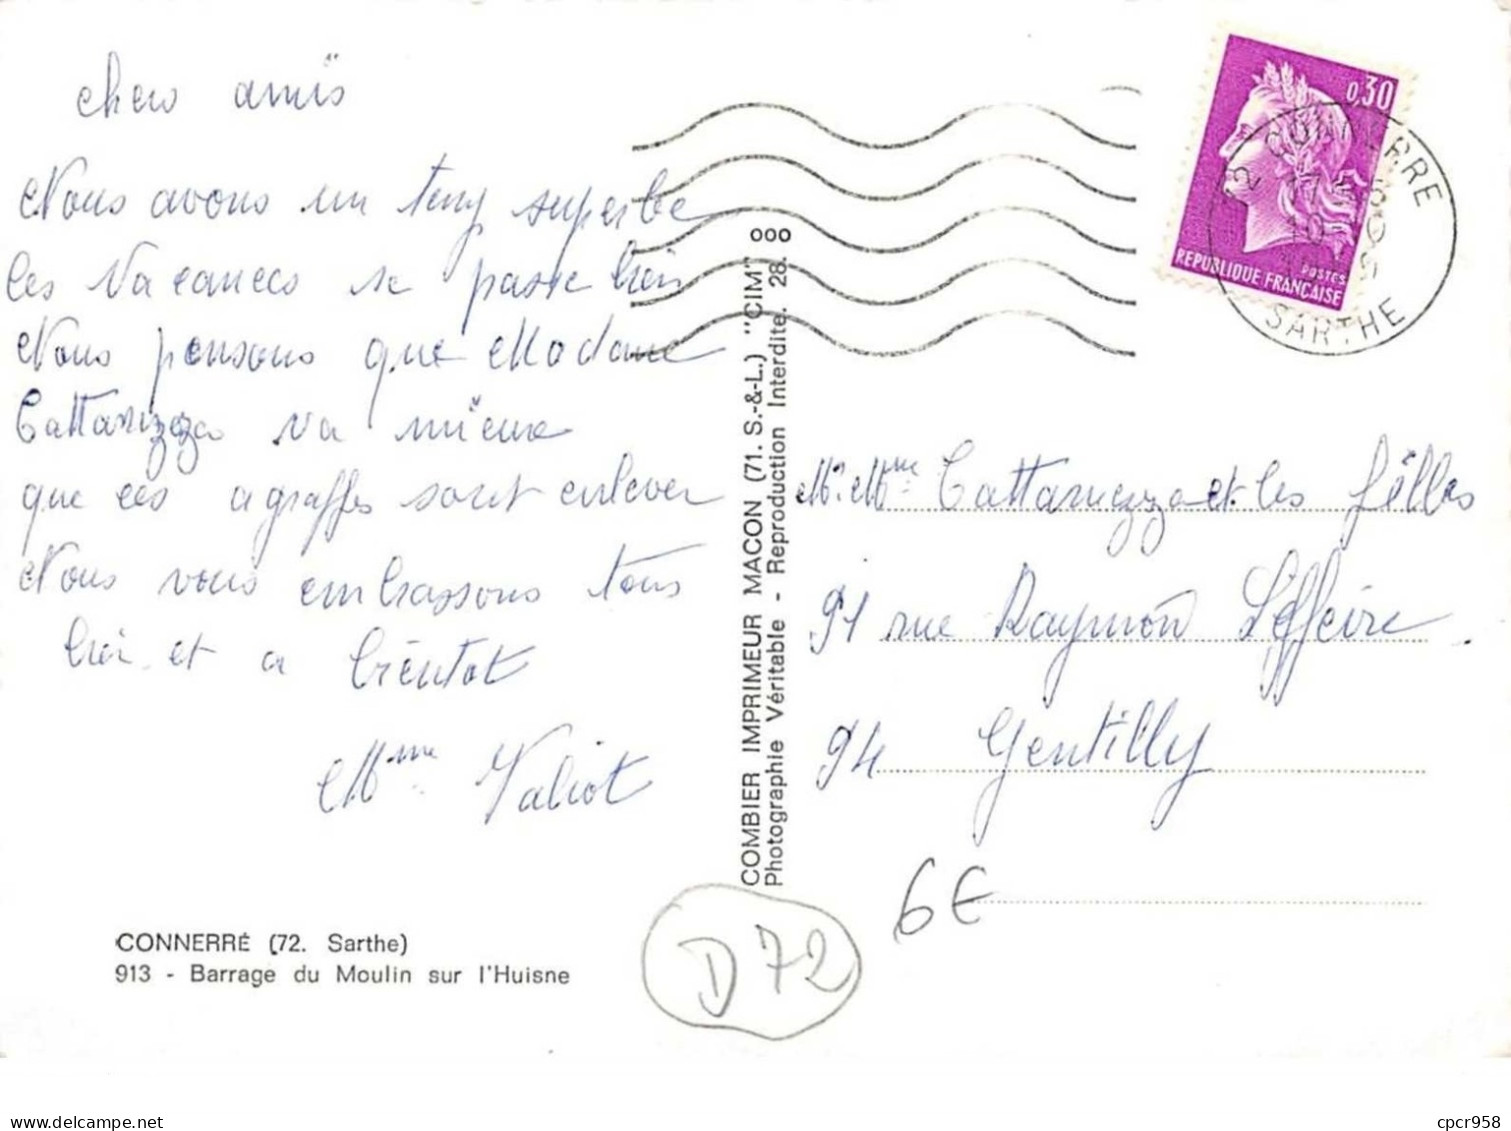 chers amis
Nous avons un temp superbe
les Vacances se passe bien
Nous pensons que Madame
Cattanezza va mieux
que ces agraffes sont enlever
Nous vous embrassons tous
bien et a bientot
Mme Valiot
CONNERRÉ (72. Sarthe)
913 - Barrage du Moulin sur l'Huisne
COMBIER IMPRIMEUR MACON (71. S.-&-L.) "CIM"
Photographie Véritable - Reproduction Interdite. 28.
000
0,30
POSTES
REPUBLIQUE FRANÇAISE
72 CONNERRE
SARTHE
Mr. Mme Cattanezza et les filles
91 rue Raymon Leffeivre.
94 Gentilly
6€
D72
cpcr958